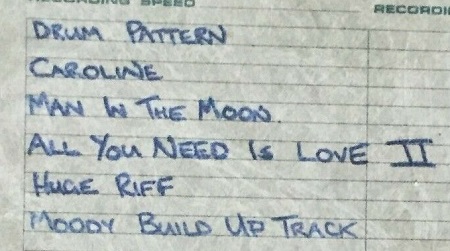 RECORDING SPEED RECORDI
DRUM PATTERN
CAROLINE
MAN IN THE MOON.
ALL YOU NEED IS LOVE II
HUGE RIFF
MOODY BUILD UP TRACK